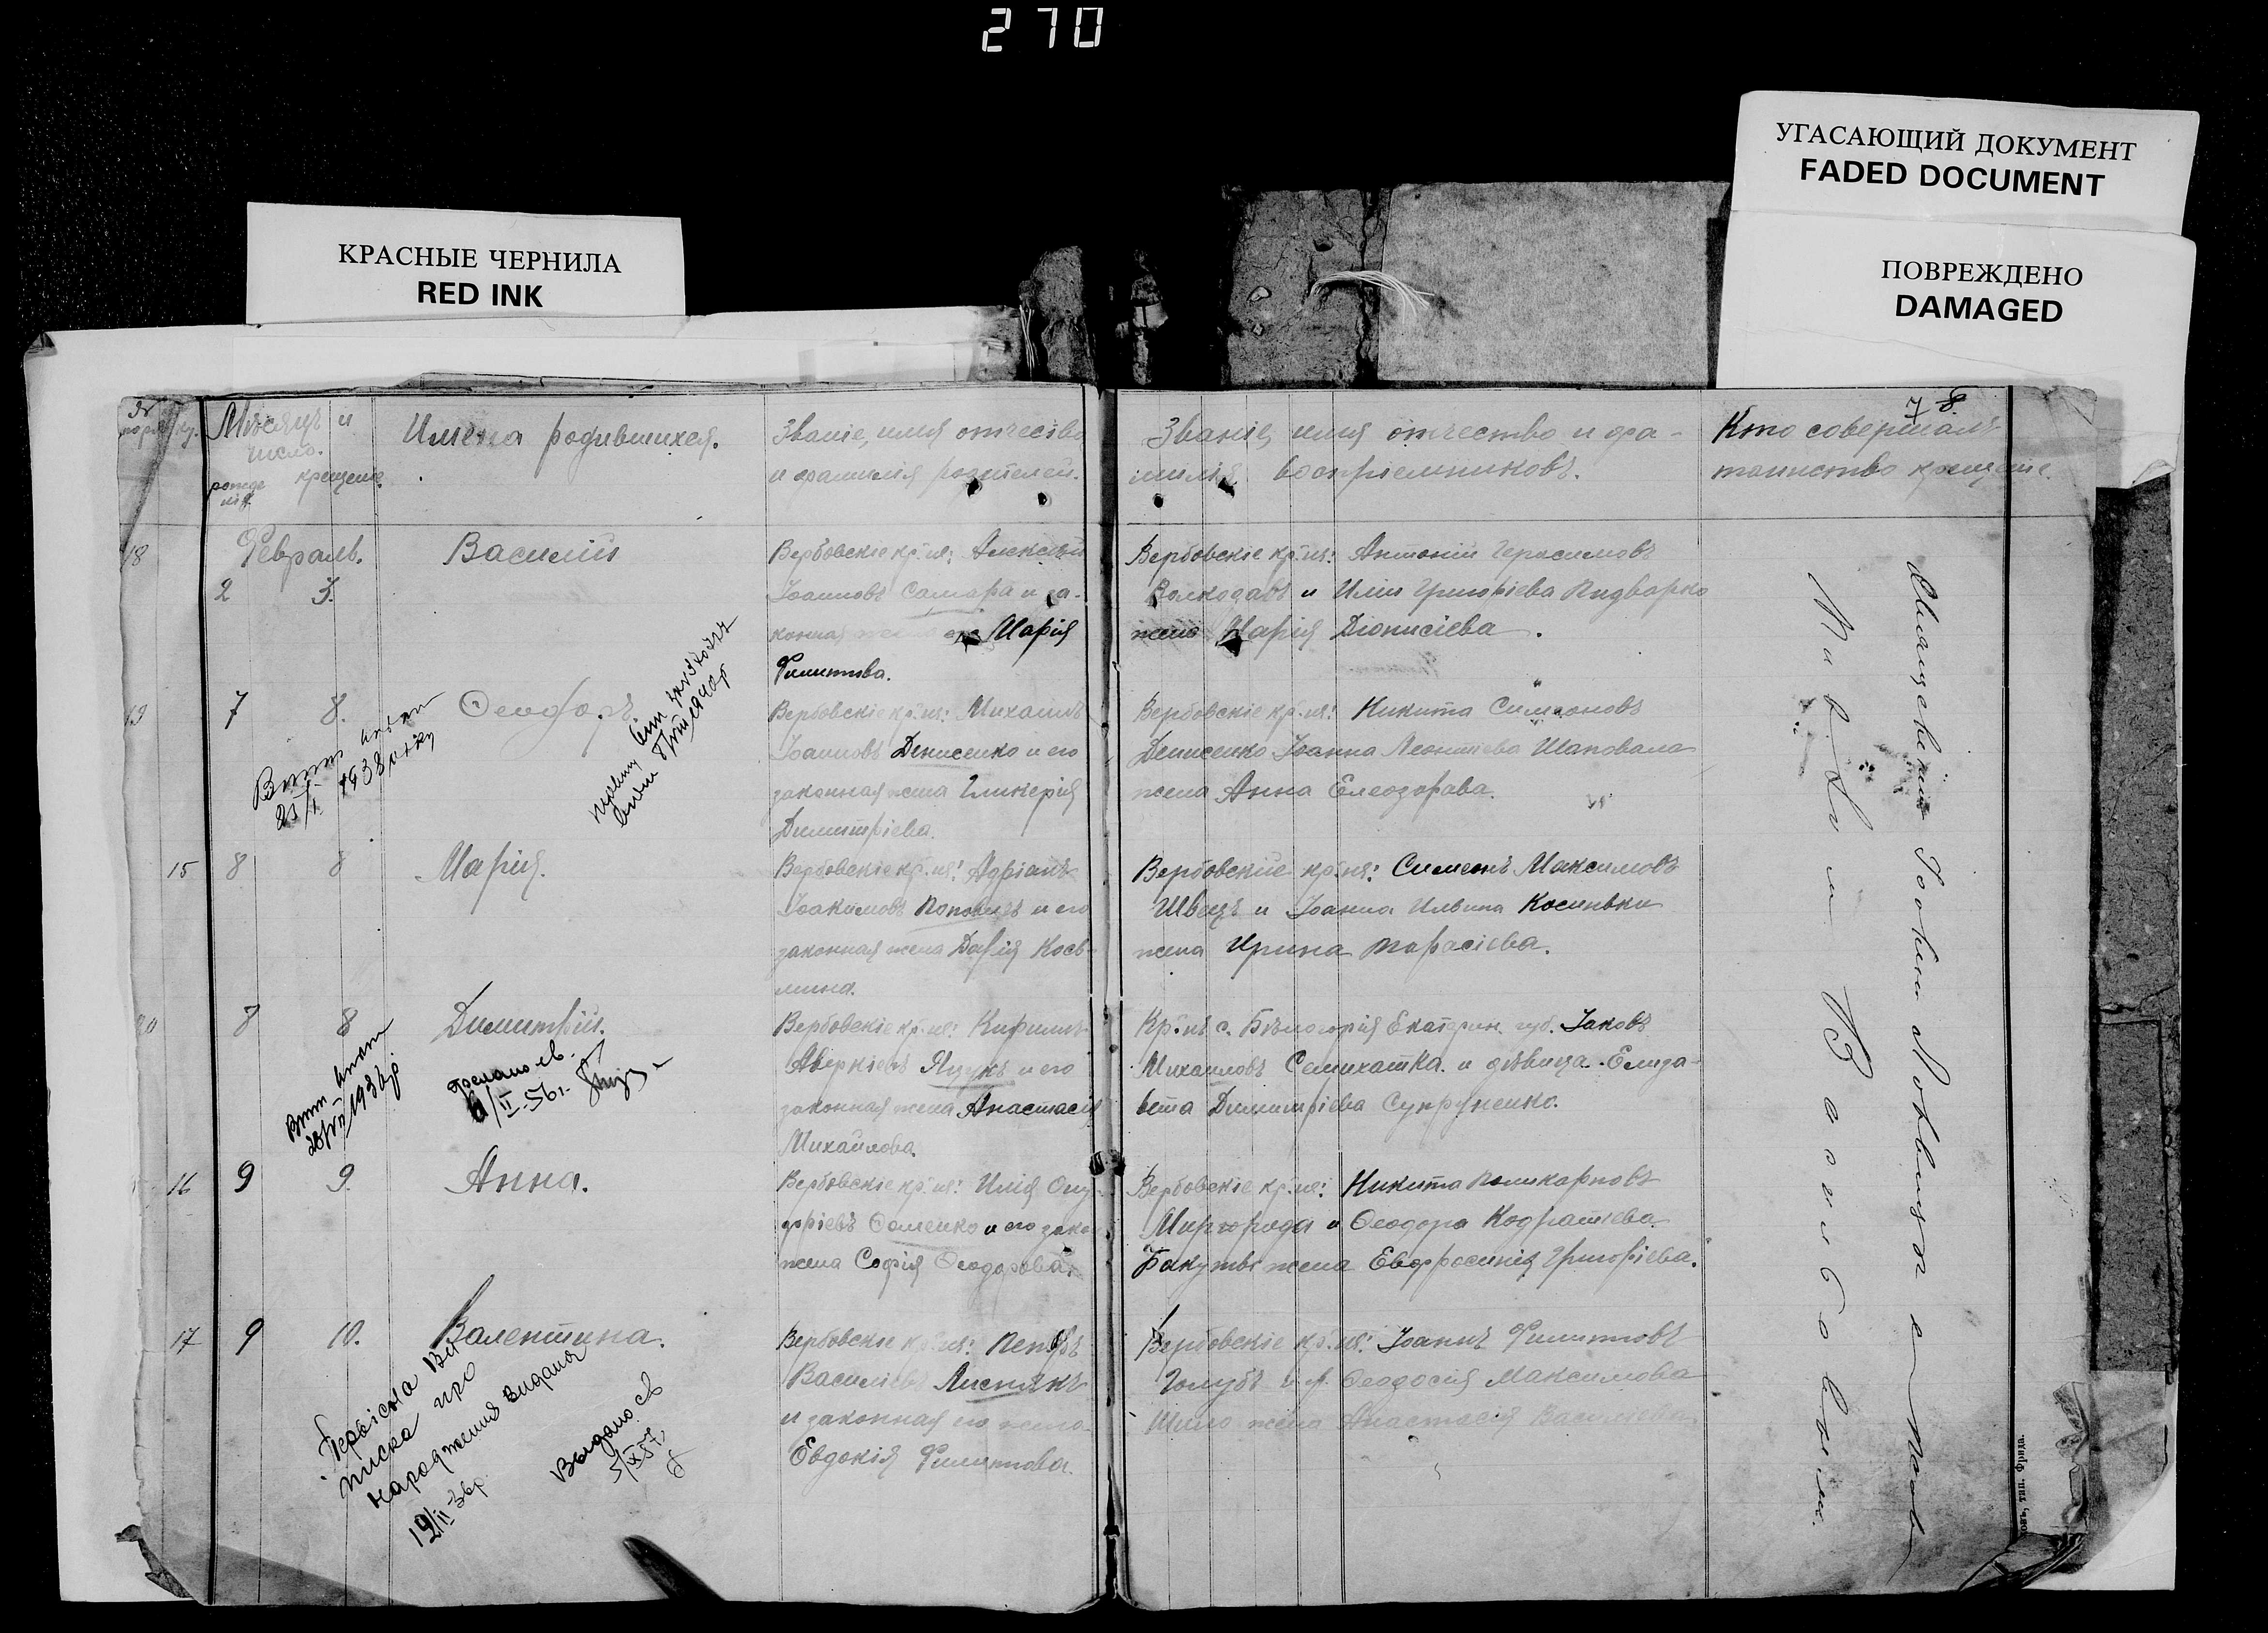 270
УГАСАЮЩИЙ ДОКУМЕНТ
FADED DOCUMENT
КРАСНЫЕ ЧЕРНИЛА
RED INK
ПОВРЕЖДЕНО
DAMAGED
Мѣсяцъ и число.
рожде нія
крещенія
Имена родившихся.
Званіе, имя отчество
и фамилія родителей.
Званіе, имя отчество и фа-
милія воспріемниковъ.
Кто совершалъ
таинство крещенія.
18
Февраль.
2 3.
Василій
Вербовскіе кр.не: Алексій
Іоанновъ Самара и за-
конная жена его Марія
Филиппова.
Вербовскіе кр.не: Антоній Герасимовъ
Волкодавъ и Иліи Григоріева Пидварко
жена Марія Діонисіева.
19 7 8.
Ѳеодоръ
Вербовскіе кр.не: Михаилъ
Іоанновъ Денисенко и его
законная жена Гликерія
Димитріева.
Вербовскіе кр.не: Никита Симеоновъ
Денисенко Іоанна Леонтіева Шаповала
жена Анна Елеозарова.
23/I 1938 року
15 8 8
Марія.
Вербовскіе кр.не: Адріанъ
Іоакимовъ Поповичъ и его
законная жена Дарія Кось-
мина.
Вербовскіе кр.не: Симеонъ Максимовъ
Швецъ и Іоанна Ильина Косиньки
жена Ирина Тарасіева.
20 8 8
Димитрій.
Вербовскіе кр.не: Кириллъ
Аверкіевъ Яцукъ и его
законная жена Анастасія
Михайлова
Кр.нъ с. Бѣлогорія Екатерин. губ. Іаковъ
Михаиловъ Семихатка и дѣвица Елиза-
вета Димитріева Супруненко.
6/II-56г.
16 9 9.
Анна.
Вербовскіе кр.не: Илія Ону-
фріевъ Фоменко и его зако
жена Софія Ѳеодорова.
Вербовскіе кр.не: Никита Поликарповъ
Миргорода и Ѳеодора Кодратіева
Бакуты жена Евфросинія Григоріева.
17 9 10.
Валентина.
Вербовскіе кр.не: Петръ
Василіевъ Листякъ
и законная его жена
Евдокія Филиппова.
Вербовскіе кр.не: Іоаннъ Филипповъ
Голубъ и Ѳеодосія Максимова
Шило жена Анастасія Василіева
Первісна Ви
писка про
народження видана
19/II-36р
Выдано св
5/IX57
Священникъ Іоаннъ
тип. Фрида.